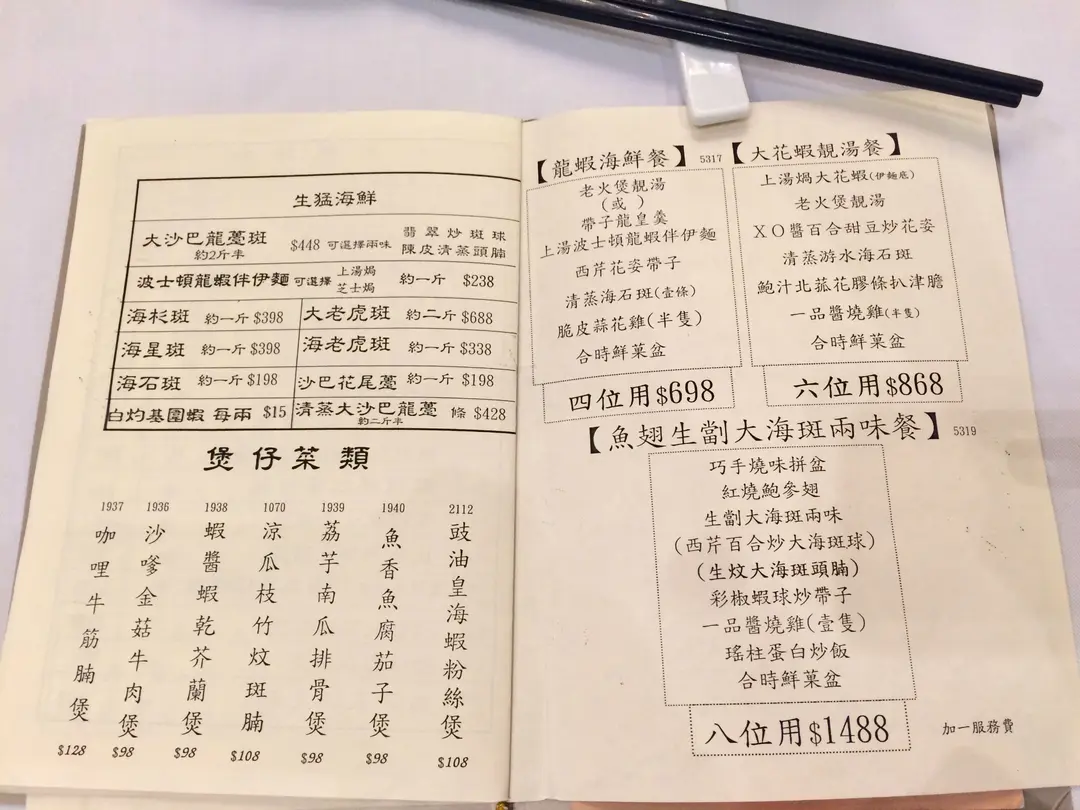 生猛海鮮
大沙巴龍躉斑 $448 可選擇兩味 翡翠炒斑球
約2斤半 陳皮清蒸頭腩
波士頓龍蝦伴伊麵 可選擇 上湯焗 芝士焗 約一斤 $238
海杉斑 約一斤 $398 大老虎斑 約二斤 $688
海星斑 約一斤 $398 海老虎斑 約一斤 $338
海石斑 約一斤 $198 沙巴花尾躉 約一斤 $198
白灼基圍蝦 每兩 $15 清蒸大沙巴龍躉 約二斤半 條 $428
煲仔菜類
1937 咖哩牛筋腩煲 $128
1936 沙嗲金菇牛肉煲 $98
1938 蝦醬蝦乾芥蘭煲 $98
1070 涼瓜枝竹炆斑腩 $108
1939 荔芋南瓜排骨煲 $98
1940 魚香魚腐茄子煲 $98
2112 豉油皇海蝦粉絲煲 $108
【龍蝦海鮮餐】 5317
老火煲靚湯
(或)
帶子龍皇羹
上湯波士頓龍蝦伴伊麵
西芹花姿帶子
清蒸海石斑(壹條)
脆皮蒜花雞(半隻)
合時鮮菓盆
四位用$698
【大花蝦靚湯餐】
上湯焗大花蝦(伊麵底)
老火煲靚湯
XO醬百合甜豆炒花姿
清蒸游水海石斑
鮑汁北菰花膠條扒津膽
一品醬燒雞(半隻)
合時鮮菓盆
六位用$868
【魚翅生劏大海斑兩味餐】 5319
巧手燒味拼盆
紅燒鮑參翅
生劏大海斑兩味
(西芹百合炒大海斑球)
(生炆大海斑頭腩)
彩椒蝦球炒帶子
一品醬燒雞(壹隻)
瑤柱蛋白炒飯
合時鮮菓盆
八位用$1488
加一服務費